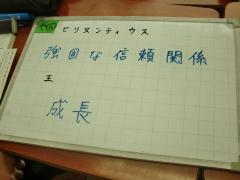 セリヌンティウス
強固な信頼関係
王
成長